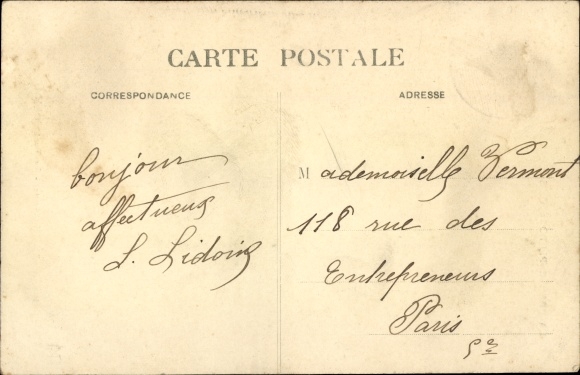 CARTE POSTALE
CORRESPONDANCE
bonjour
affectueux
ADRESSE
Mademoiselle Vermont
118 rue des
Entrepreneurs
Paris